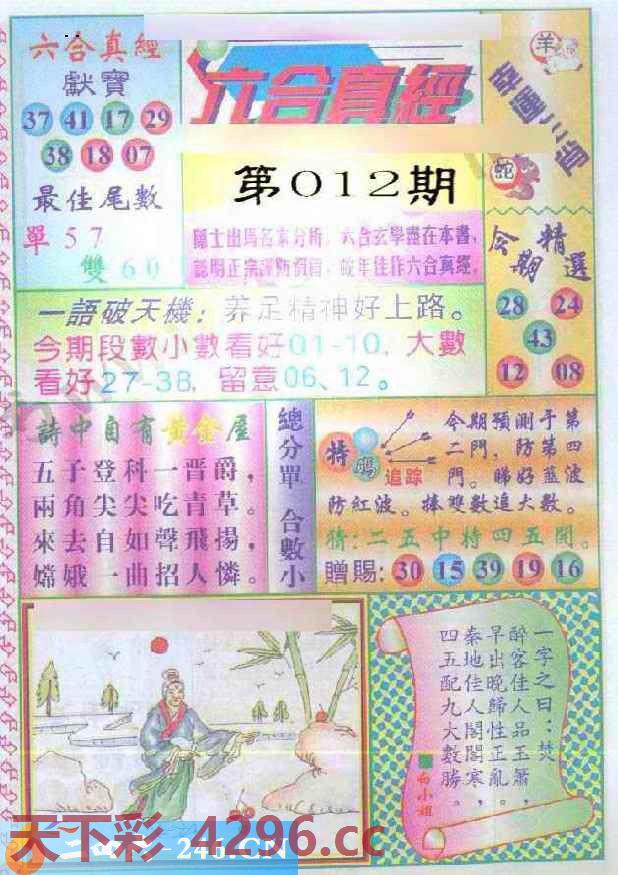 六合真經
獻寶
37 41 17 29
38 18 07
最佳尾數
單57
雙60
六合真經
第012期
六合玄學盡在本書、
蛇年佳作六合真經。
羊
蛇
今期精選
28 24
43
12 08
一語破天機：养足精神好上路。
今期段數小數看好01-10，大數
看好27-38，留意06、12。
詩中自有黃金屋
五子登科一晋爵，
兩角尖尖吃青草。
來去自如聲飛揚，
嫦娥一曲招人憐。
總分單 合數小
特碼
追踪
今期預測于第
二門，防第四
門。睇好藍波
防紅波。捧雙數追大數。
猜：二五中特四五開。
贈賜：30 15 39 19 16
一字之曰：焚
醉客佳人品玉簫，
早出晚歸性正亂。
秦地佳人閣閣寒，
四五配九大數勝。
白小姐
天下彩 4296.cc
246.CN